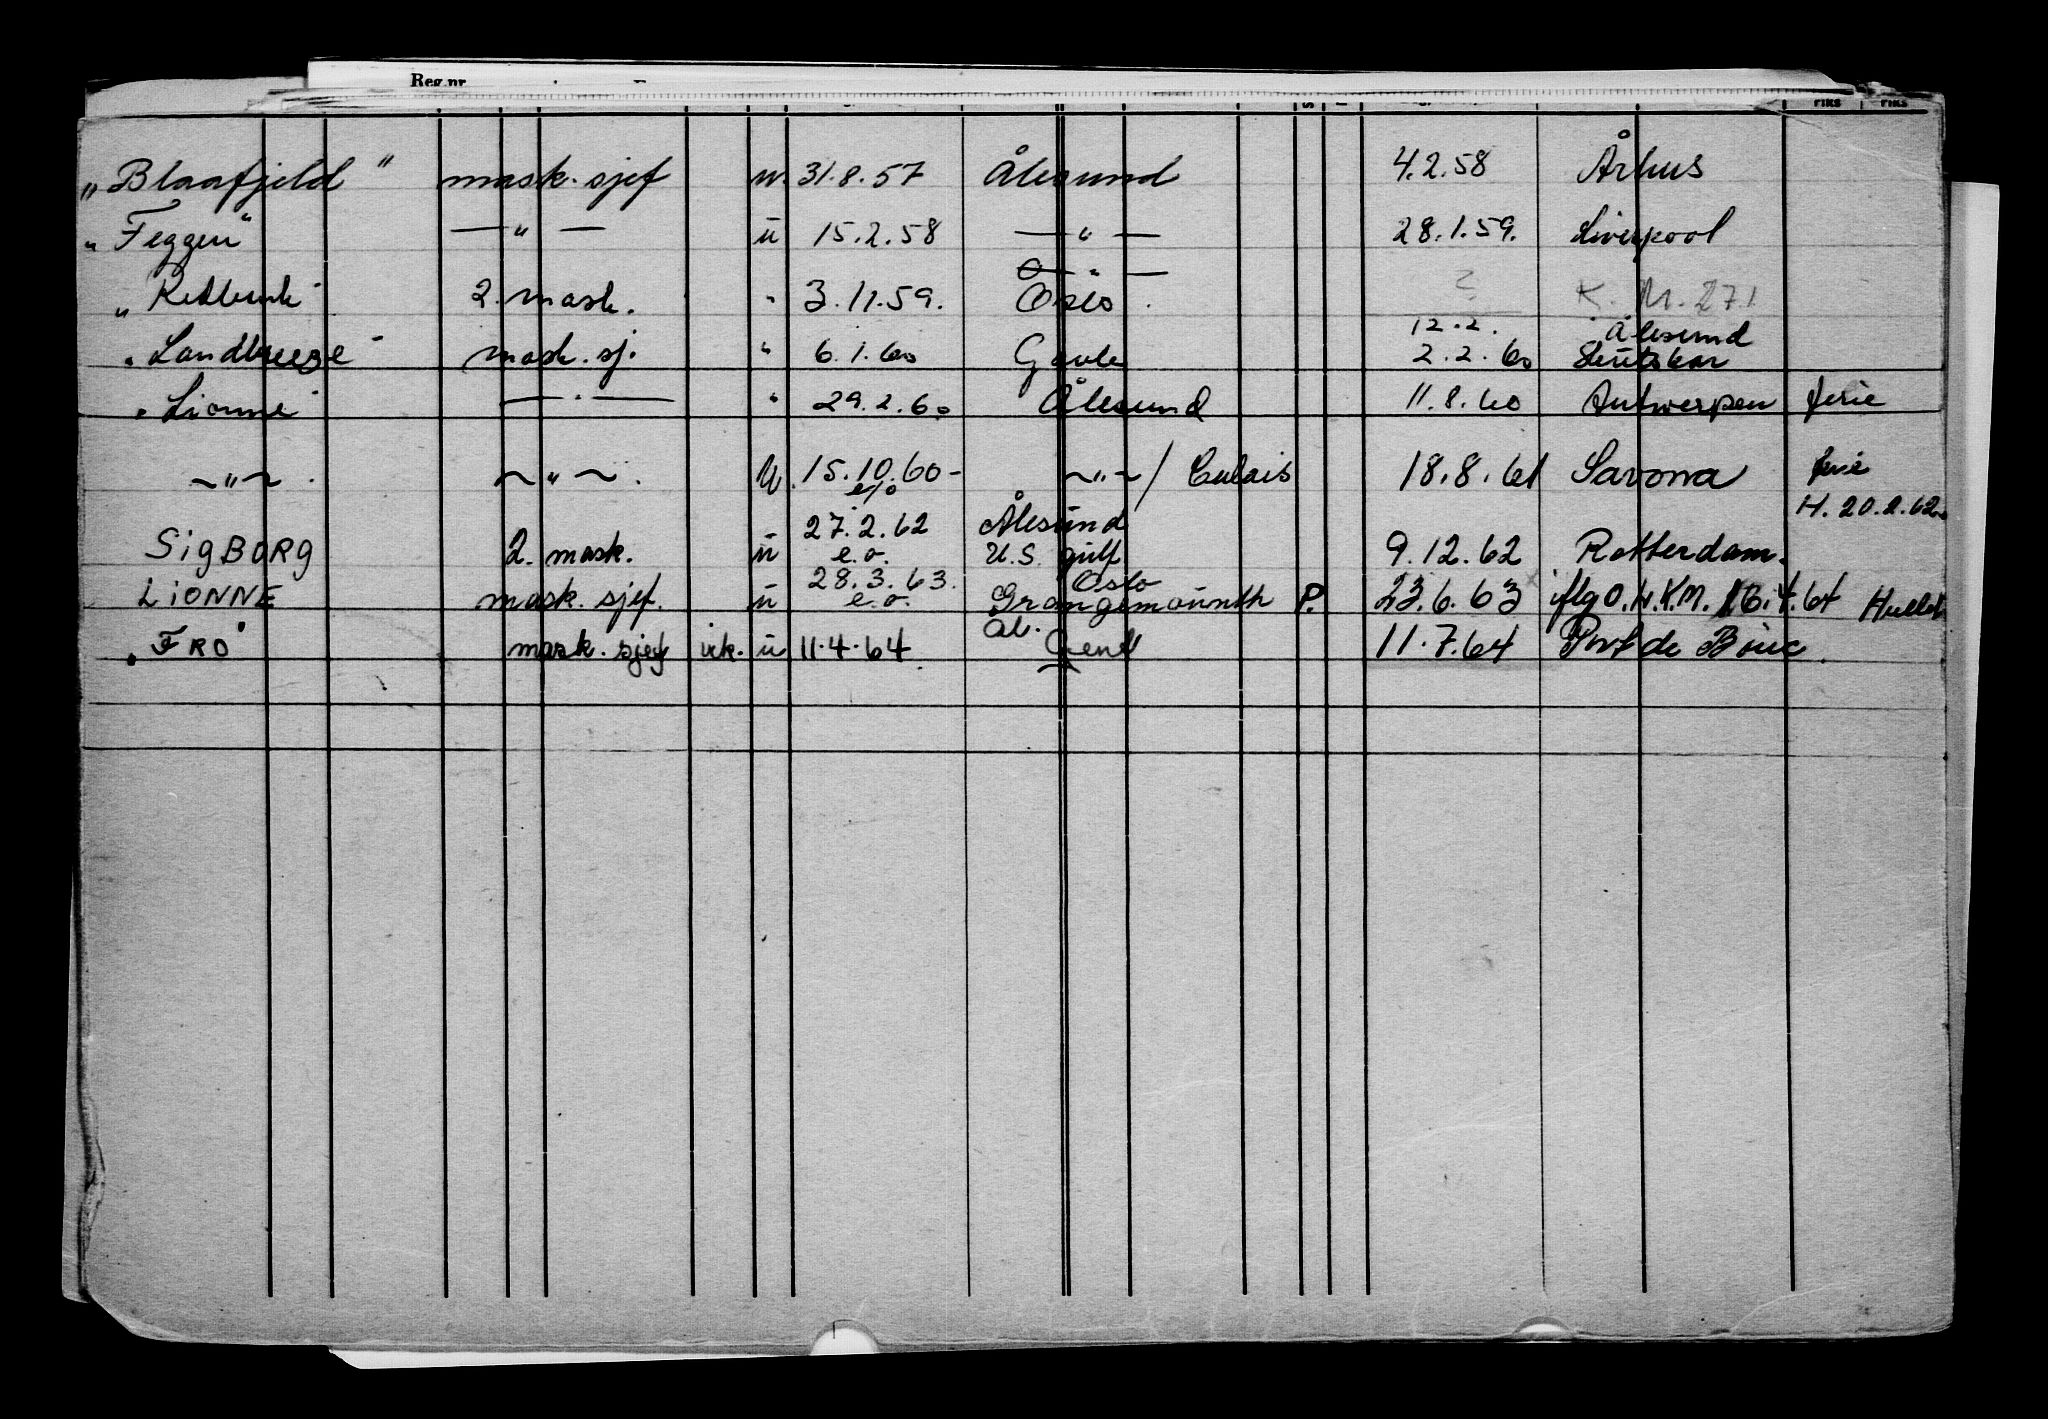 Reg.nr.
S
Fiks Fiks
„Blaafjeld" mask. sjef u. 31.8.57 Ålesund 4.2.58 Århus
„Feggen" —"— ū 15.2.58 —"— 28.1.59. Liverpool
—"—
„Redbank" 2. mask. " 3.11.59. Oslo. ? K.M. 271
12.2. Ålesund
„Landbreeze" mask. sj. " 6.1.60 Gavle 2.2.60 Skutskär
„Lionne" —"— " 29.2.60 Ålesund 11.8.60 Antwerpen ferie
~"~. ~"~. U. 15.10.60- ~"~/ Calais 18.8.61 Savona ferie
e/o H. 20.2.62.
27.2.62 Ålesund
SigBORG 2. mask. ū e.o. U.S. gulf 9.12.62 Rotterdam.
28.3.63. Oslo
LiONNE mask. sjef. ū e.o. Grangemounth P. 23.6.63 iflg O.H.K.M. 16.4.64 Hullet
Ål.
„FRO" mask. sjef irk. ū 11.4.64 Gent 11.7.64 Port de Bouc.